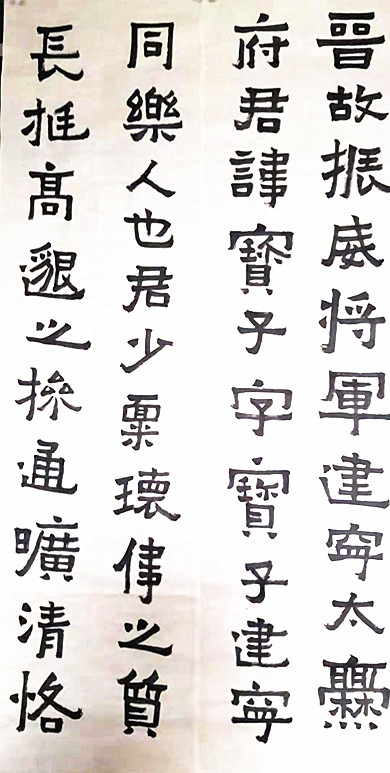 晉故振威将軍建寧太爨
府君諱寶子字寶子建寧
同樂人也君少稟瓌偉之質
長挺髙邈之操通曠清恪